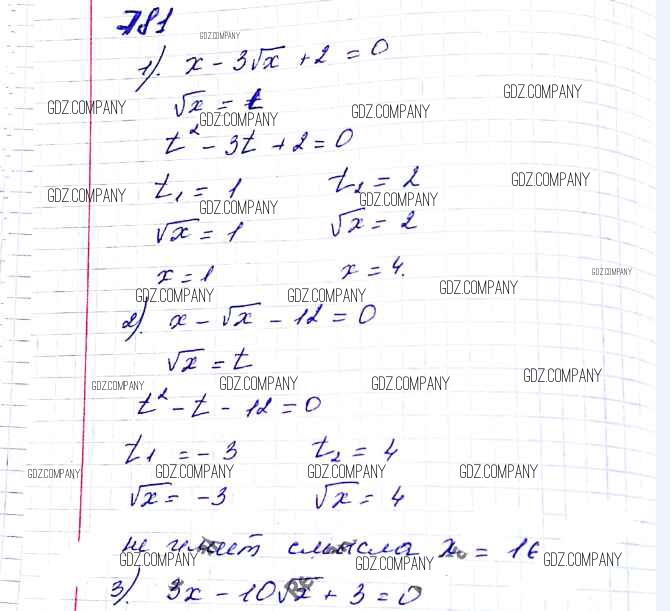 781
GDZ.COMPANY
1). x - 3√x + 2 = 0
GDZ.COMPANY
√x = t
GDZ.COMPANY GDZ.COMPANY GDZ.COMPANY
t² - 3t + 2 = 0
t₁ = 1 t₂ = 2
GDZ.COMPANY GDZ.COMPANY GDZ.COMPANY GDZ.COMPANY
√x = 1 √x = 2
x = 1 x = 4.
GDZ.COMPANY GDZ.COMPANY GDZ.COMPANY GDZ.COMPANY
2). x - √x - 12 = 0
√x = t
GDZ.COMPANY GDZ.COMPANY GDZ.COMPANY GDZ.COMPANY
t² - t - 12 = 0
t₁ = -3 t₂ = 4
GDZ.COMPANY GDZ.COMPANY GDZ.COMPANY GDZ.COMPANY
√x = -3 √x = 4
не имеет смысла x = 16
GDZ.COMPANY GDZ.COMPANY GDZ.COMPANY
3). 3x - 10√x + 3 = 0